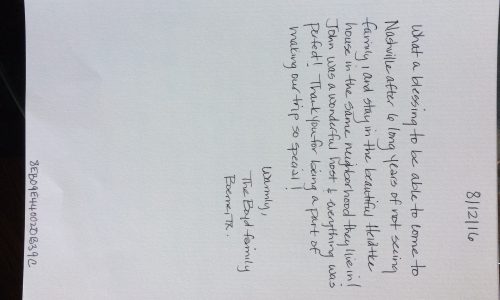 8/12/16
What a blessing to be able to come to
Nashville after 6 long years of not seeing
family, and stay in the beautiful
house in the same neighborhood they live in!
John was a wonderful host & everything was
perfect! Thank you for being a part of
making our trip so special!
Warmly,
The Boyd family
Boerne, TX.